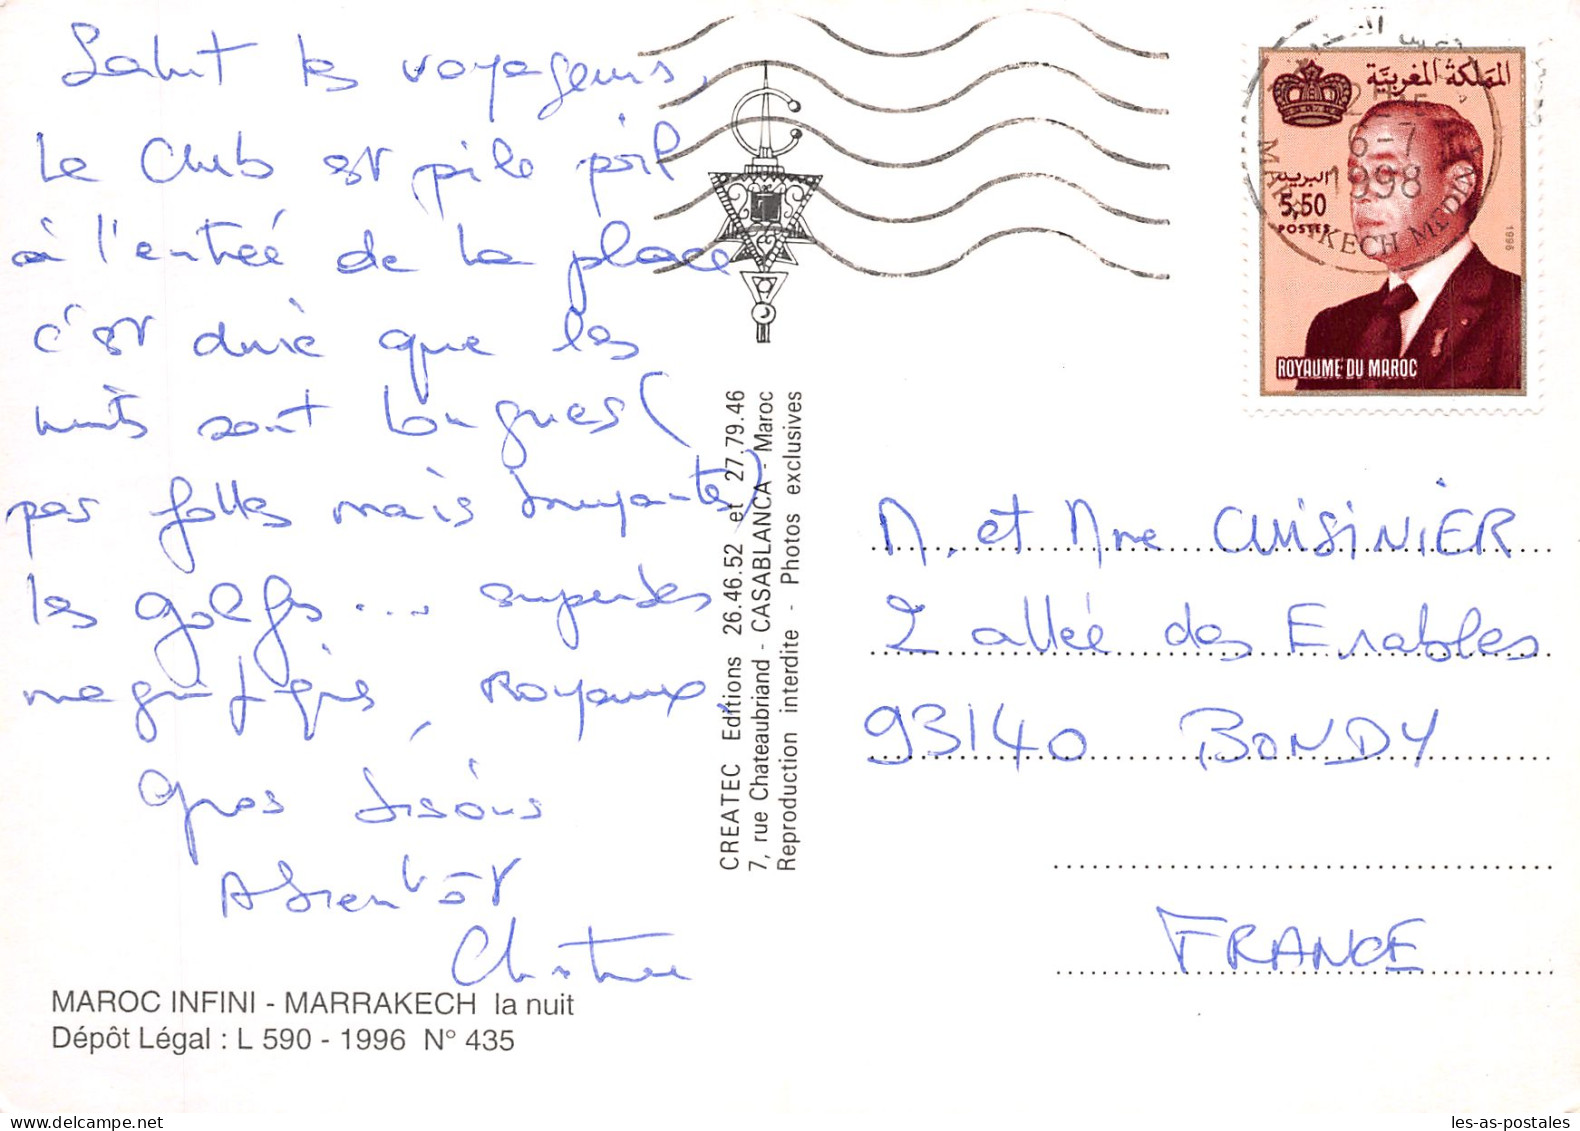 Salut les voyageurs,
Le Club est pile poil
à l'entrée de la place
c'est dire que les
nuits sont longues (
pas folles mais bruyantes)
les golfs... superbes
magnifiques, Royaux,
Gros bisous
A bientôt
Christine
MAROC INFINI - MARRAKECH la nuit
Dépôt Légal : L 590 - 1996 N° 435
CREATEC Editions 26.46.52 et 27.79.46
7, rue Chateaubriand - CASABLANCA - Maroc
Reproduction interdite - Photos exclusives
المملكة المغربية
البريد
5,50
POSTES
1996
ROYAUME DU MAROC
6-7
1998
MARRAKECH MEDINA
M. et Mme CUISINIER
2 allée des Erables
93140 BONDY
FRANCE
les-as-postales